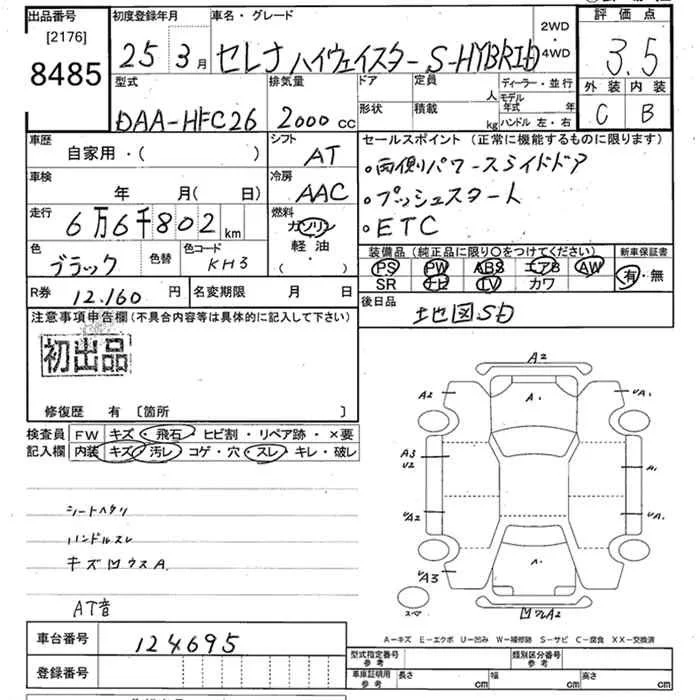 出品番号
[2176]
8485
初度登録年月
25年3月
車名・グレード
セレナ ハイウェイスター S-HYBRID
2WD
・
4WD
評価点
3.5
外装 内装
C B
型式
DAA-HFC26
排気量
2000 cc
ドア
形状
定員
人
積載
kg
ディーラー・並行
モデル年式 年
ハンドル 左・右
車歴
自家用・( )
シフト
AT
車検
年 月( 日)
冷房
AAC
走行
6万6千802 km
燃料
ガソリン
軽油
・( )
色
ブラック
色替
色コード
KH3
セールスポイント (正常に機能するものに限ります)
・両側パワースライドドア
・プッシュスタート
・ETC
装備品 (純正品に限り○をつけてください)
PS PW ABS エアB AW
SR ナビ TV カワ
新車保証書
有・無
R券 12,160 円
名変期限 月 日
後日品
地図SD
注意事項申告欄 (不具合内容等は具体的に記入して下さい)
初出品
修復歴 有 〔箇所 〕
検査員 FW キズ・飛石・ヒビ割・リペア跡・×要
記入欄 内装 キズ・汚レ・コゲ・穴・スレ・キレ・破レ
シートヘタリ
ハンドルスレ
キズ凹ウスA
AT音
A2
A2
A.
UA1
A3
U2
A.
UA2
UA.
UA3
A.
スペア
凹ワレA2
A-キズ E-エクボ U-凹み W-補修跡 S-サビ C-腐食 XX-交換済
車台番号 124695
登録番号
型式指定番号
参考
類別区分番号
参考
車庫証明用
参考
長さ cm
幅 cm
高さ cm